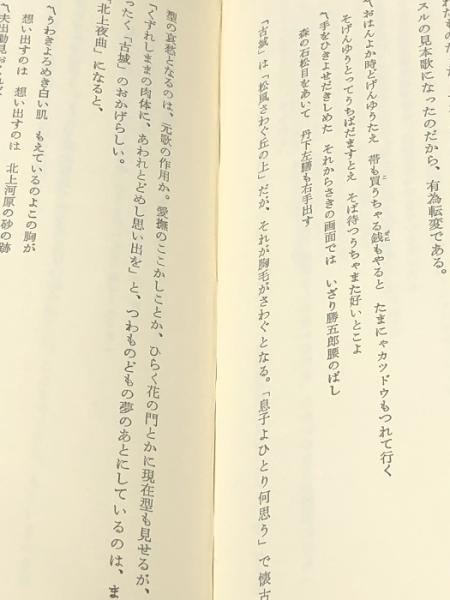 れたものだ
スルの見本歌になったのだから、有為転変である。
〽おはんよか時どげんゆうたえ　帯も買うちゃる銭もやると　たまにゃカツドウもつれて行く
そげんゆうとってうちばだますとえ　そば待つうちゃまた好いとこよ
〽手をひきよせだきしめた　それからさきの画面では　いざり勝五郎腰のばし
森の石松目をあいて　丹下左膳も右手出す
「古城」は「松風さわぐ丘の上」だが、それが胸毛がさわぐとなる。「息子よひとり何思う」で懐古
型の哀愁となるのは、元歌の作用か。愛撫のここかしことか、ひらく花の門とかに現在型も見せるが、
「くずれしままの肉体に、あわれとどめし思い出を」と、つわものどもの夢のあとにしているのは、ま
ったく「古城」のおかげらしい。
「北上夜曲」になると、
〽うわきよろめき白い肌　もえているのよこの胸が
想い出すのは　想い出すのは　北上河原の砂の跡